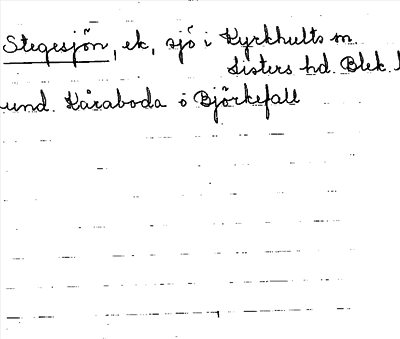 Stegesjön, ek, sjö i Kyrkhults sn
Listers hd. Blek. l
und. Kåraboda o Björkefall